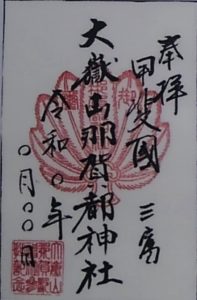 奉拝
甲斐國 三富
大嶽山那賀都神社
令和〇年
〇月〇〇日